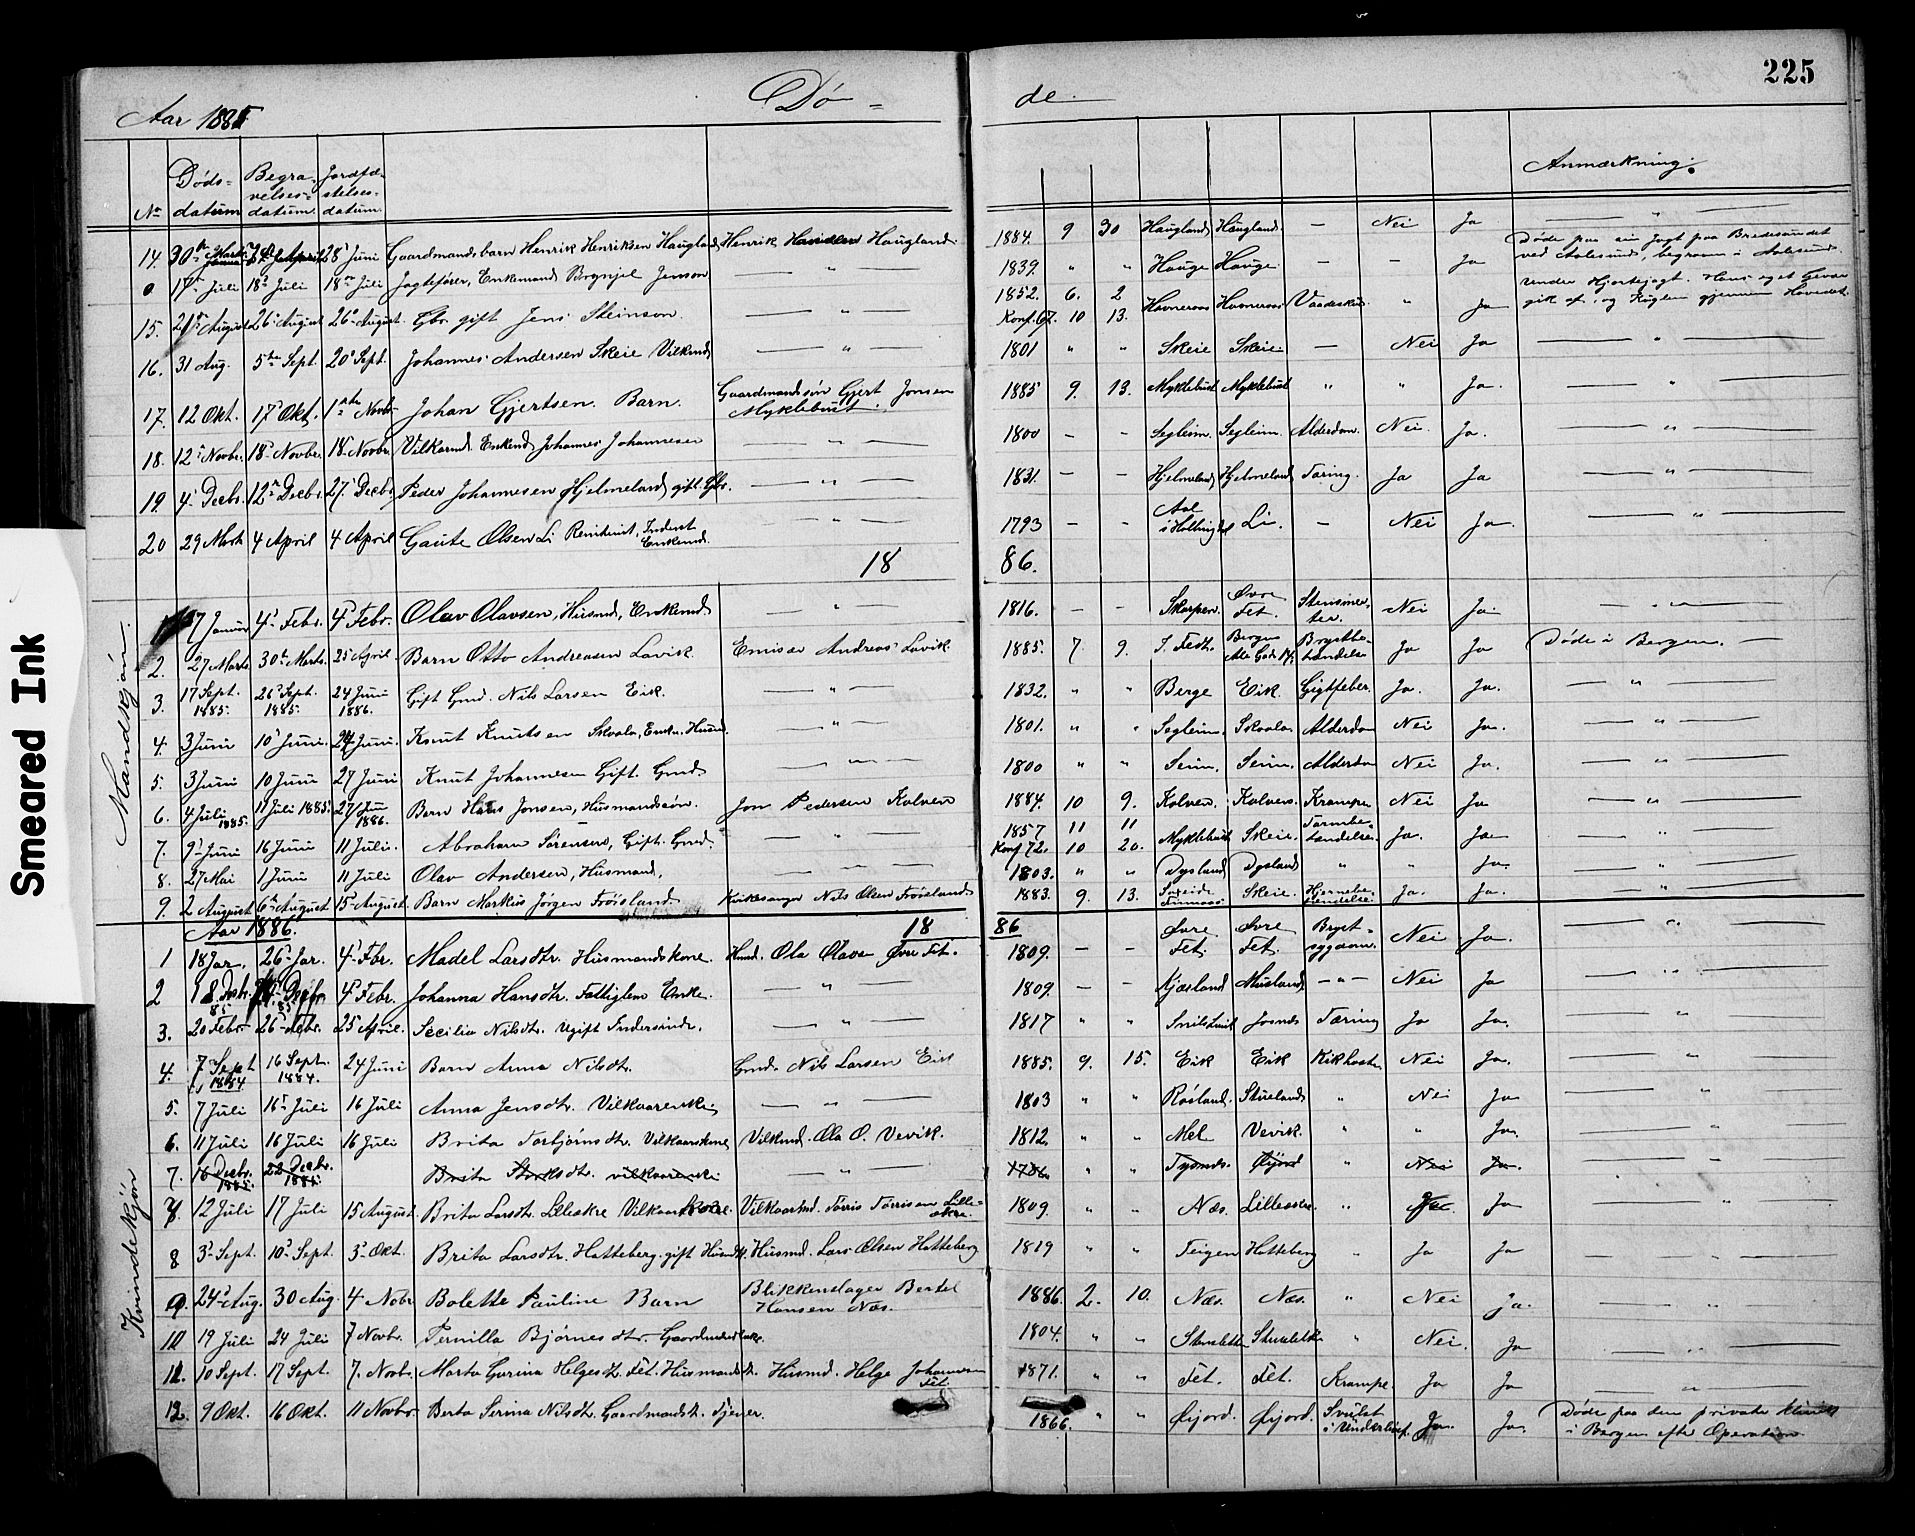 225
Aar 1885 Dø - de
Døds- datum Begra- velses- datum Jordfæ- stelses- datum Anmærkning.
No
14. 30te Marts 28 Juni Gaardmandsbarn Henrik Henriksen Haugland Henrik Haugland 1884. 9 30 Haugland Haugland — Nei Ja — " —
0 17 Juli 18 Juli 18 Juli Jagtefører, Enkemand Brynjel Jenson — " — 1839. " " Hauge Hauge — — Ja Døde paa sin Jagt paa Bredesundet ved Aalesund, begraven i Aalesund.
15. 21 August 26 August 26 August. Gbr. gift Jens Steinson. — " — 1852. 6. 2 Konf. 67. 10 13. Havneraas Havneraas Vaadeskud " Ja under Hjortejagt. Hans eget Gevær gik af og Kuglen gjennem Hovedet.
16. 31 Aug. 5te Sept. 20 Sept. Johannes Andersen Skeie Vilkmd — " — 1801 " " Skeie Skeie — Nei Ja — " —
17. 12 Okt. 17 Okt. 1ste Novbr Johan Gjertsen. Barn. Gaardmandssøn Gjert Jonsen Myklebust. 1885 9. 13. Myklebust Myklebust " " Ja. — " —
18. 12 Novbr. 18 Novbr. 18 Novbr. Vilkarmd. Enkemd Johannes Johannesen — " — 1800 — — Segleim. Segleim. Alderdom. Nei. Ja. — " —
19. 4 Decbr. 12 Decbr. 27 Decbr. Peder Johannesen Hjelmeland gift Gbr. — " — 1831. — — Hjelmeland Hjelmeland Tæring. Ja Ja — " —
20 29 Marts 4 April 4 April Gaute Olsen Li Inderst Enkemd. — " — 1793 — — Aal i Hallingdal Li. — Nei Ja. — " —
18 86.
Mandskjøn.
17 Januar 4 Febr. 4 Febr. Olav Olavsen, Husmd, Enkemd — " — 1816. — — Skorpen. Øvre Fet. Nei Ja. — " —
2. 27 Marts 30te Marts 25 April Barn Otto Andreasen Lavik Emisær Andreas Lavik 1885. 7. 9. Bergen Brystbe- tændelse Ja Ja Døde i Bergen.
3. 17 Sept. 1885. 26 Sept. 1885. 24 Juni 1886. Gift Gmd. Nils Larsen Eik. — " — 1832. " " Berge Eik. Gigtfeber. Ja. Ja. — " —
4. 3 Juni 10 Juni. 24 Juni. Knut Knutsen Skvala, Enkm. Husmd. — " — 1801. " " Segleim. Skvala Alderdom Nei Ja. — " —
5. 3 Juni 10 Juni 27 Juni Knut Johannesen Gift. Gmd — " — 1800 " " Seim. Seim. Alderdom Nei Ja. — " —
6. 4 Juli 1885. 11 Juli 1885. 27 Juni 1886. Barn Hans Jonsen, Husmandssøn. Jon Pedersen Kolven 1884. 10 9. Kolven. Kolven. Krampe Nei Ja — " —
7. 9 Juni 16 Juni 11 Juli. Abraham Sørensen, Gift. Gmd. — " — 1857 11 11 Konf 72. 10 20. Myklebust Skeie. Tarmbe- tændelse. Ja. Ja — " —
8. 27 Mai 1 Juni 11 Juli Olav Andersen, Husmand, — " — 1803. " " Dysland Dysland " " Ja. — " —
9. 2 August 6te August 15 August. Barn Markus Jørgen Frøisland Kirkesanger Nils Olsen Frøisland 1883. 9. 13. Skeie. Hjernebe- tændelse. Ja. Ja. — " —
Aar 1886. 18 86
Kvindekjøn
1 18 Jar. 26 Jar. 4 Fbr. Madel Larsdtr. Husmandskone. Husmd. Ola Olavs. Øvre Fet. 1809. — — Øvre Fet. Øvre Fet. Bryst- sygdom. Nei Ja. — " —
2 18 Decbr. 85 4 Febr. Johanna Hansdtr. Fattiglem Enke. — " — 1809. — — Kjæsland Musland — " — Nei Ja — " —
3. 20 Febr 26 Febr. 25 April. Secilia Nilsdtr. ugift Inderstinde. — " — 1817 " " Tæring Ja Ja. — " —
4. 7 Sept 1884 16 Sept. 1884. 24 Juni Barn Anna Nilsdtr. Gmd. Nils Larsen Eik 1885. 9. 15. Eik Eik Kikhoste Nei Ja. — " —
5. 7 Juli 16 Juli 16 Juli Anna Jensdtr. Vilkaarenke — " — 1803 " " Røsland. " Nei Ja — " —
6. 11 Juli 16 Juli 16 Juli Brita Torbjørnsdtr. Vilkaarskone Vilkmd. Ola O. Vevik. 1812. " " Mel Vevik. " " Ja. — " —
7. 16 Decbr. 1885. 22 Decbr. 1885 Brita vilkaarenke — " — 1786 " " Tysnes. Øijord " Nei Ja.
7. 12 Juli 17 Juli 15 August. Brita Larsdtr. Lilleskre Vilkaarskone. Vilkaarmd. Torris Torrisen Lille- skre. 1809. " " Næs. Lilleskre. " Ja — " —
8 3 Sept. 10 Sept. 3 Okt. Brita Larsdtr. Hatteberg. gift Husmdk. Husmd. Lars Olsen Hatteberg 1819 " " Teigen Hatteberg " Ja Ja — " —
9. 24 Aug. 30 Aug. 4 Novbr Bolette Pauline Barn Blikkenslager Bertel Hansen Næs. 1886. 2. 10. Næs. Næs. " Nei Ja. — " —
10 19 Juli 24 Juli 7 Novbr. Pernilla Bjørnesdtr. Gaardmandsenke. 1804. " " " Nei. Ja — " —
11. 10 Sept. 17 Sept. 7. Novbr. Marta Gurina Helgesdtr. Fet. Husmandsdt. Husmd. Helge Johannesen Fet. 1871. " " Fet. Fet. Krampe. Ja Ja — " —
12. 9 Okt. 16 Okt. 11 Novbr. Berta Serina Nilsdtr. Gaardmandsdt. Tjener. 1866. " " Øijord. Øijord. Svulst i Underlivet. Ja. Ja. Døde paa den private Klinik i Bergen efter Operation.
Smeared Ink